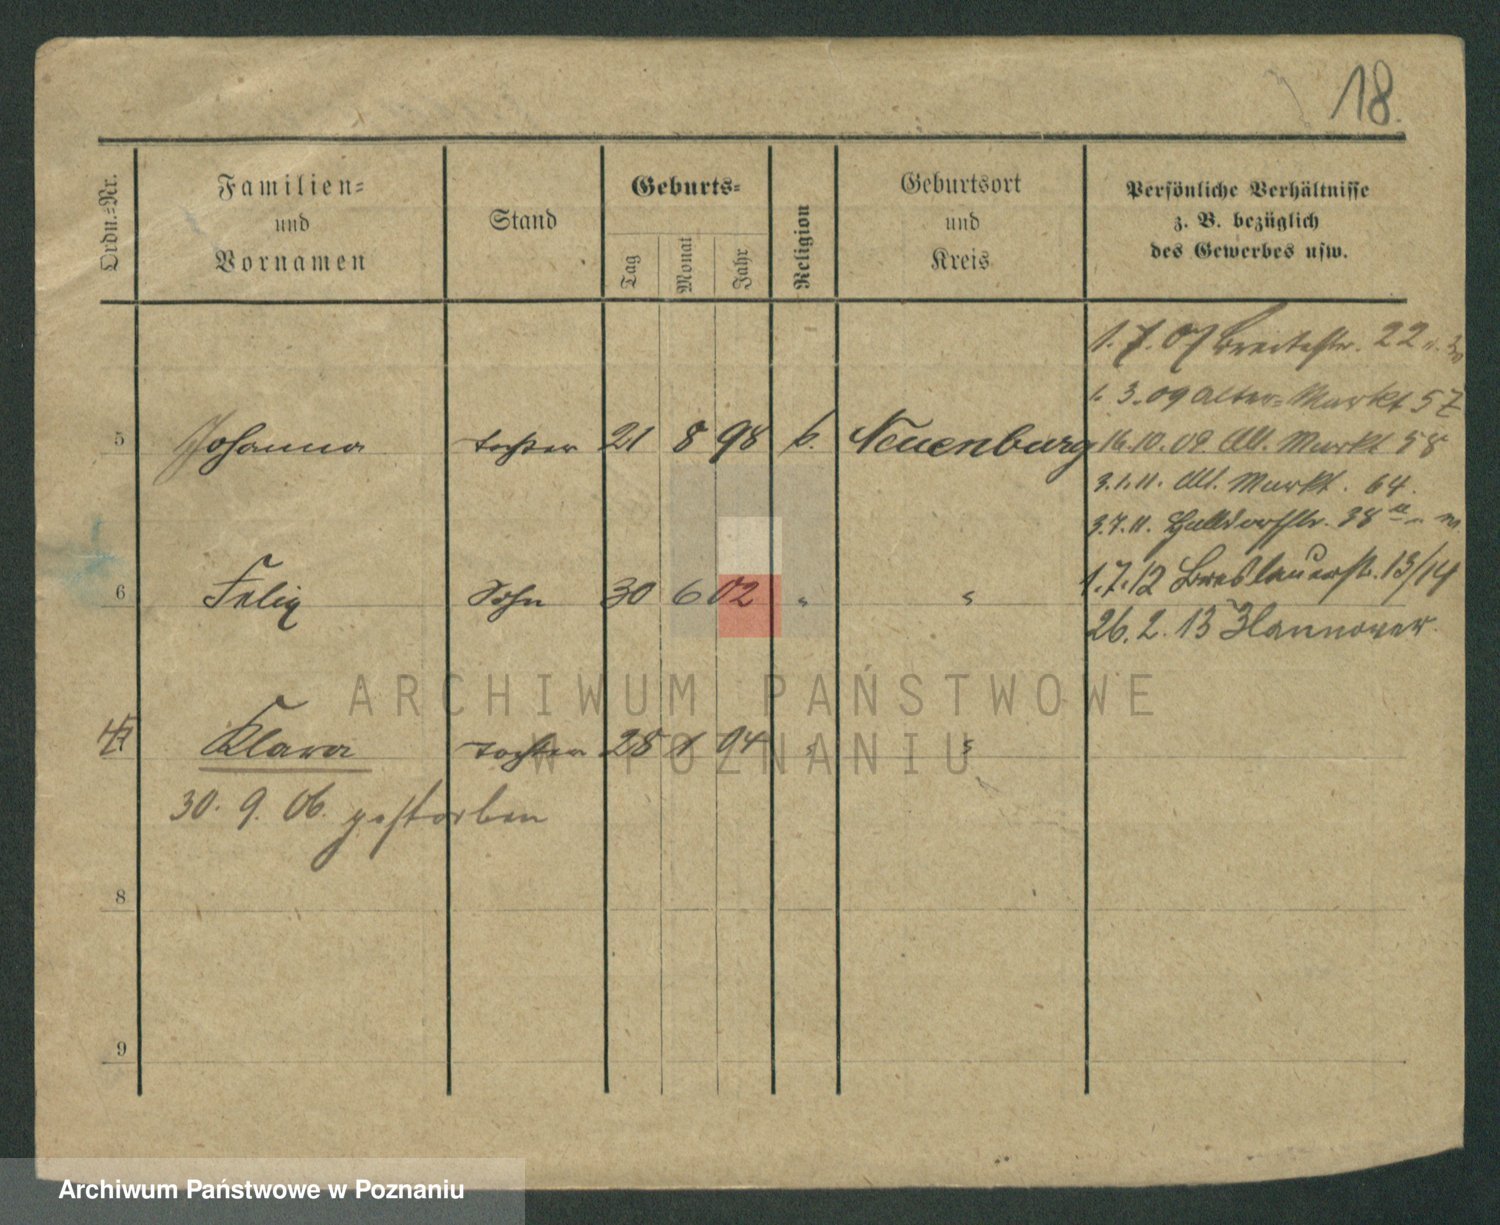 18.
Ordn.=Nr.
Familien=
und
Vornamen
Stand
Geburts=
Tag
Monat
Jahr
Religion
Geburtsort
und
Kreis
Persönliche Verhältnisse
z. B. bezüglich
des Gewerbes usw.
1.7.07 Breitestr. 22
1.3.09 Alter=Markt 57
5 Johanna Tochter 21 8 98 Neuenburg
16.10.09 Alt. Markt 58
3.1.11. Alt. Markt. 64.
3.7.11. Halbdorfstr. 38
6 Felix Sohn 30 6 02 " "
1.7.12 Breslauerstr. 13/14
26.2.13 Hannover.
Klara Tochter 28 04 " "
30. 9. 06. gestorben
8
9
ARCHIWUM PAŃSTWOWE
W POZNANIU
Archiwum Państwowe w Poznaniu